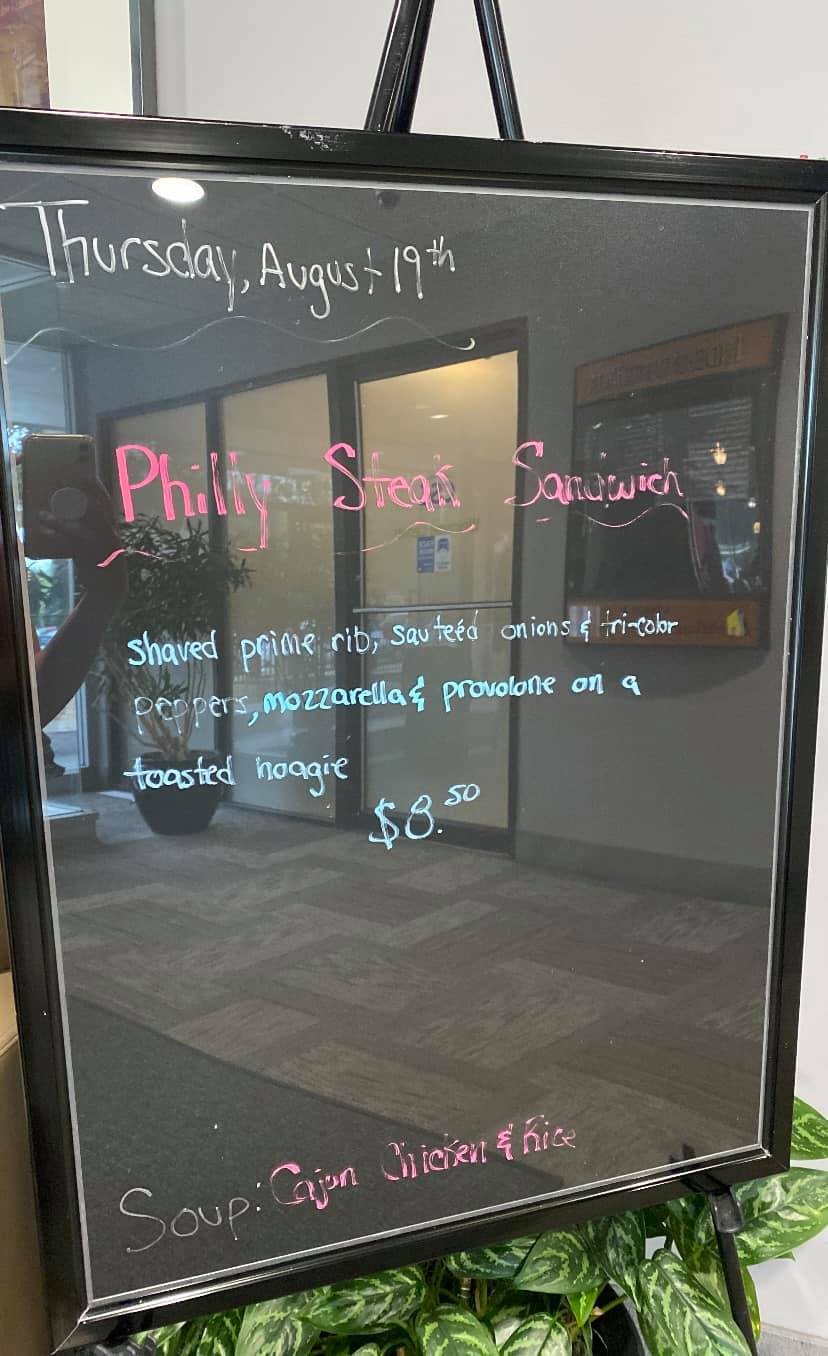 Thursday, August 19th
Philly Steak Sandwich
shaved prime rib, sauteéd onions & tri-color
peppers, mozzarella & provolone on a
toasted hoagie
$8.50
Soup: Cajun Chicken & Rice